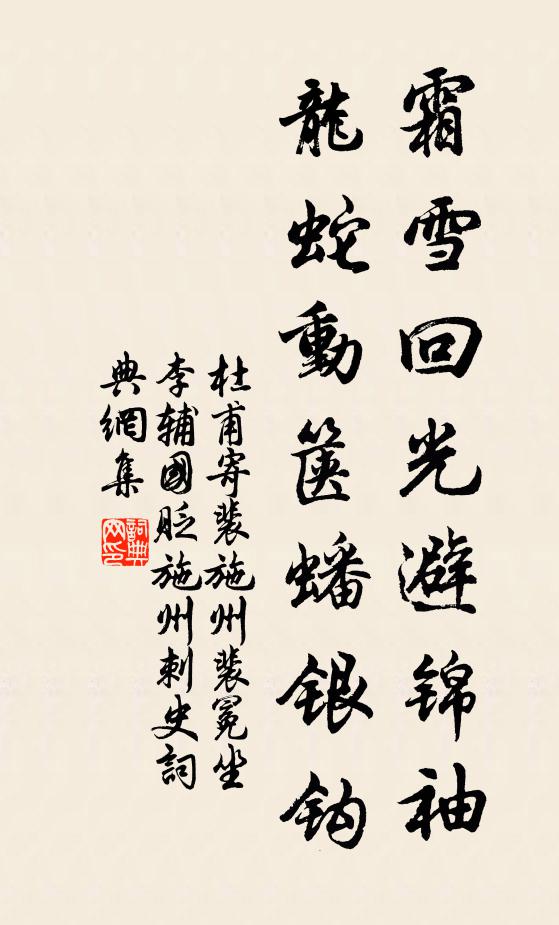 霜雪回光避锦袖
龍蛇動箧蟠银钩
杜甫寄裴施州裴冕坐
李辅國貶施州刺史詞
典網集
詞典
网印